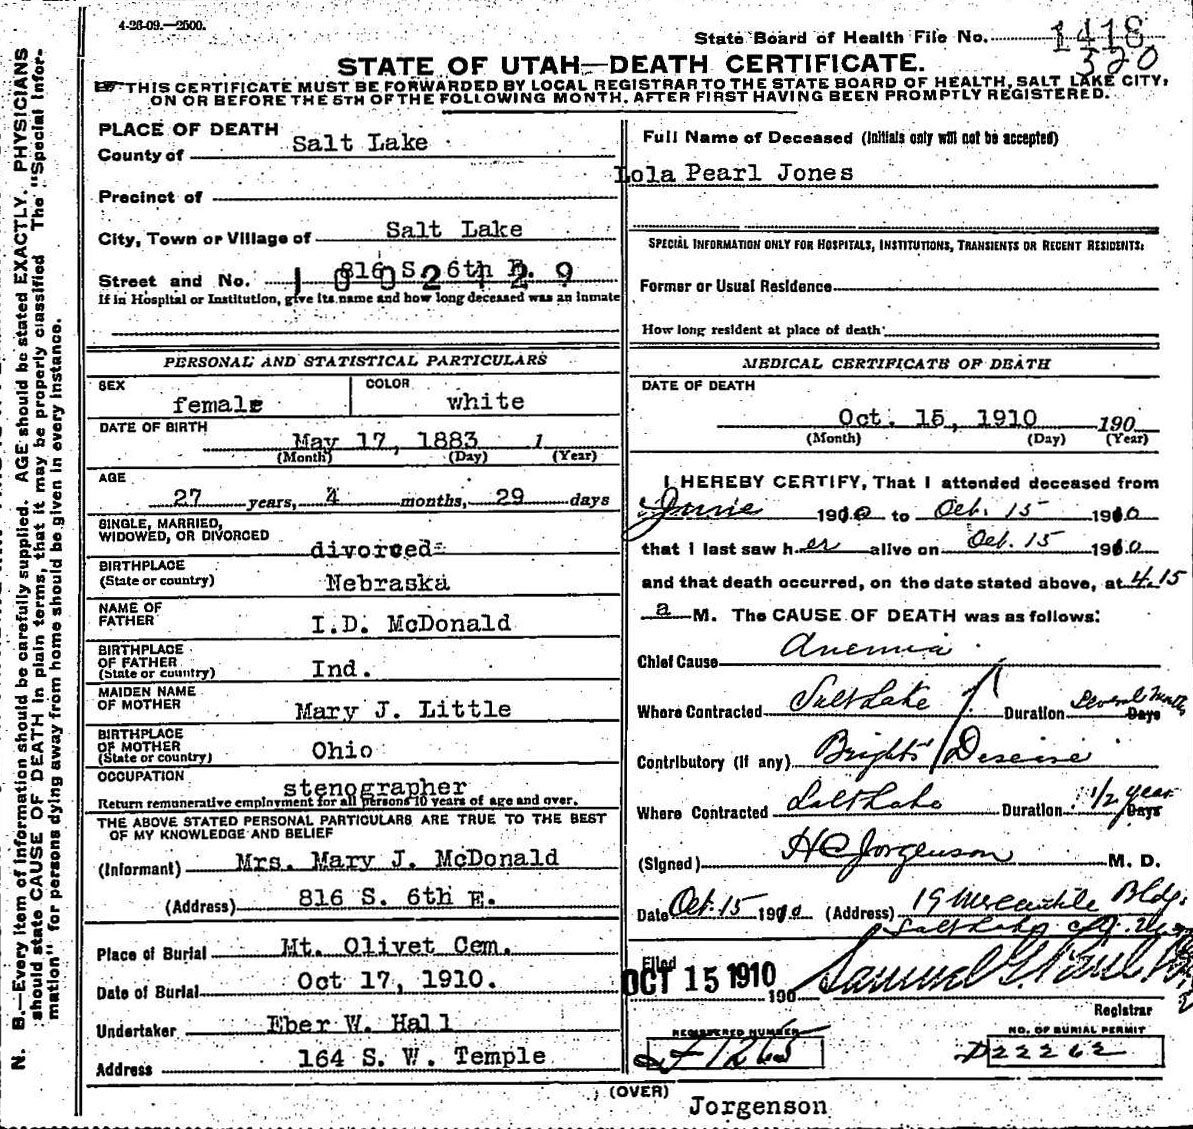 4-26-09.—2500.
State Board of Health File No. 1418
320
STATE OF UTAH—DEATH CERTIFICATE.
THIS CERTIFICATE MUST BE FORWARDED BY LOCAL REGISTRAR TO THE STATE BOARD OF HEALTH, SALT LAKE CITY,
ON OR BEFORE THE 5TH OF THE FOLLOWING MONTH, AFTER FIRST HAVING BEEN PROMPTLY REGISTERED.
PLACE OF DEATH
County of Salt Lake
Precinct of
City, Town or Village of Salt Lake
Street and No. 816 S. 6th E.
If in Hospital or Institution, give its name and how long deceased was an inmate
PERSONAL AND STATISTICAL PARTICULARS
SEX female COLOR white
DATE OF BIRTH
May 17, 1883 1
(Month) (Day) (Year)
AGE
27 years, 4 months, 29 days
SINGLE, MARRIED,
WIDOWED, OR DIVORCED divorced
BIRTHPLACE
(State or country) Nebraska
NAME OF
FATHER I.D. McDonald
BIRTHPLACE
OF FATHER
(State or country) Ind.
MAIDEN NAME
OF MOTHER Mary J. Little
BIRTHPLACE
OF MOTHER
(State or country) Ohio
OCCUPATION stenographer
Return remunerative employment for all persons 10 years of age and over.
THE ABOVE STATED PERSONAL PARTICULARS ARE TRUE TO THE BEST
OF MY KNOWLEDGE AND BELIEF
(Informant) Mrs. Mary J. McDonald
(Address) 816 S. 6th E.
Place of Burial Mt. Olivet Cem.
Date of Burial Oct 17, 1910.
Undertaker Eber W. Hall
Address 164 S. W. Temple
Full Name of Deceased (Initials only will not be accepted)
Lola Pearl Jones
SPECIAL INFORMATION ONLY FOR HOSPITALS, INSTITUTIONS, TRANSIENTS OR RECENT RESIDENTS:
Former or Usual Residence
How long resident at place of death
MEDICAL CERTIFICATE OF DEATH
DATE OF DEATH
Oct. 15, 1910 190
(Month) (Day) (Year)
I HEREBY CERTIFY, That I attended deceased from
June 1910 to Oct. 15 1910
that I last saw her alive on Oct. 15 1910
and that death occurred, on the date stated above, at 4.15
a M. The CAUSE OF DEATH was as follows:
Chief Cause Anemia
Where Contracted Salt Lake Duration Several Months Days
Contributory (if any) Brights Disease
Where Contracted Salt Lake Duration 1/2 year Days
(Signed) HC Jorgenson M. D.
Date Oct. 15 1910 (Address) 19 Mercantile Bldg.
Salt Lake City
Filed
OCT 15 1910 190
Registrar
REGISTERED NUMBER
NO. OF BURIAL PERMIT
D22262
(OVER)
Jorgenson
N. B.—Every item of information should be carefully supplied. AGE should be stated EXACTLY. PHYSICIANS
should state CAUSE OF DEATH in plain terms, that it may be properly classified The "Special Infor-
mation" for persons dying away from home should be given in every instance.